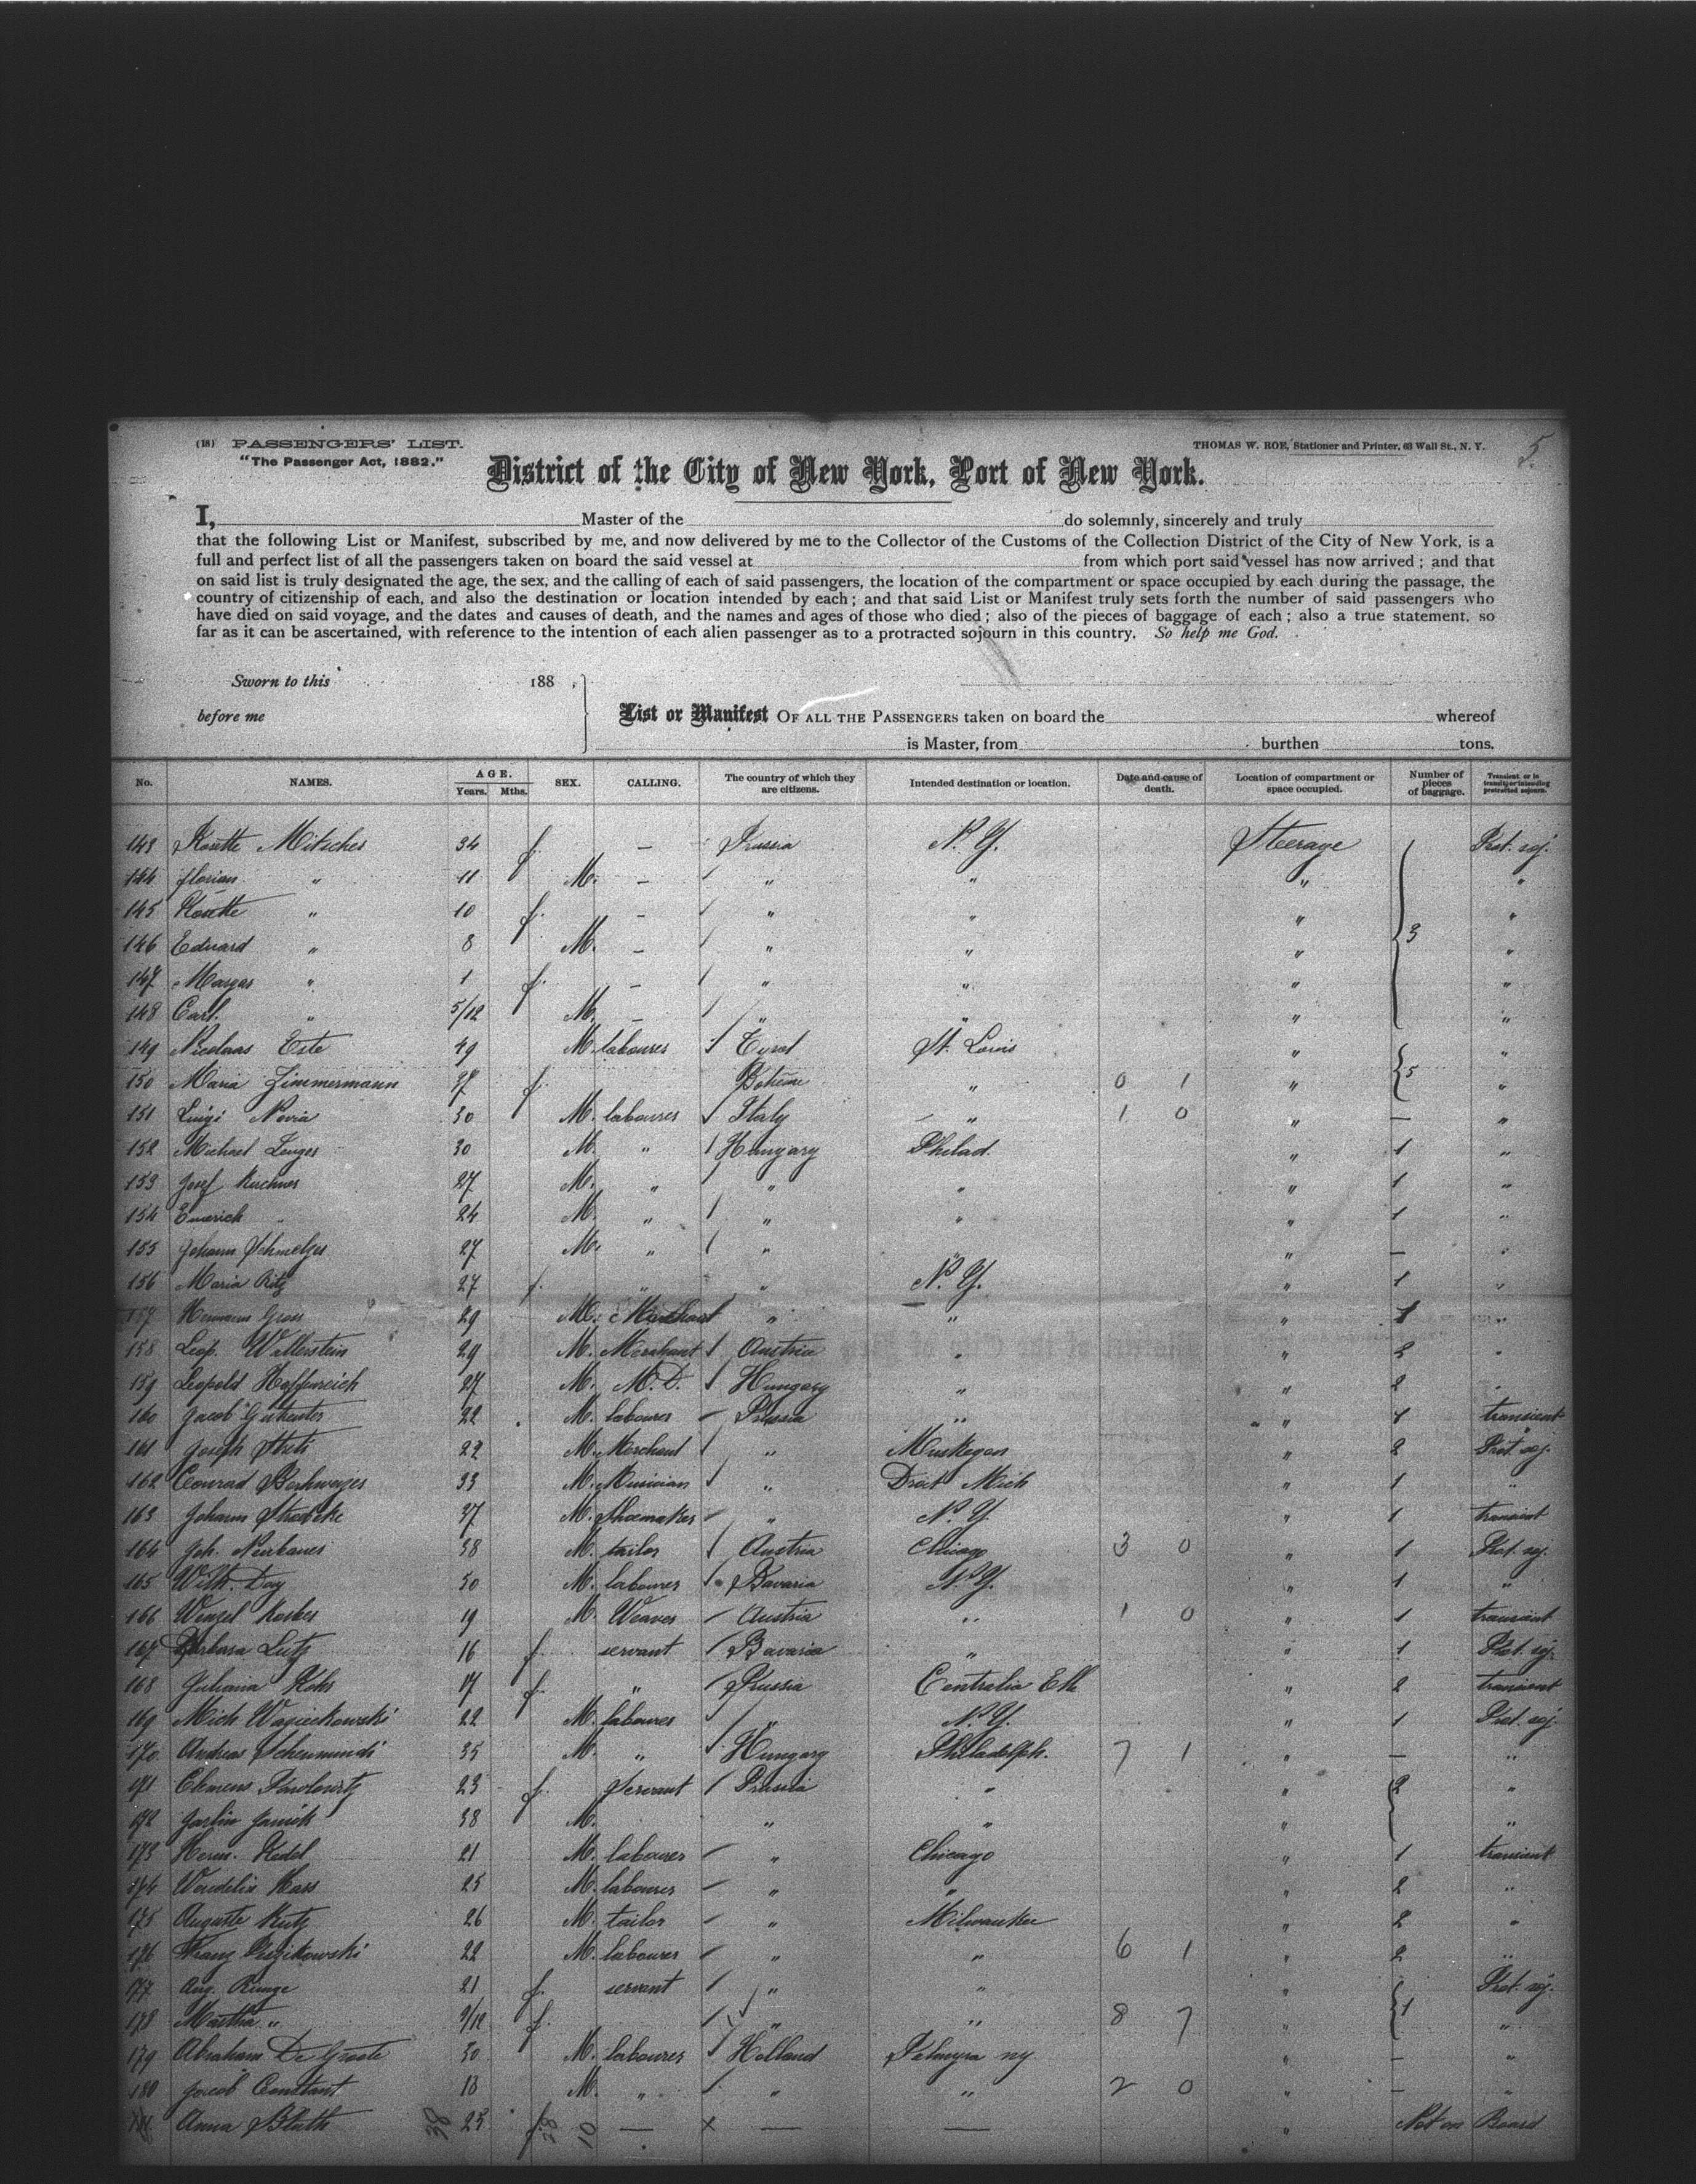 (18) PASSENGERS' LIST.
THOMAS W. ROE, Stationer and Printer, 63 Wall St., N. Y.
5.
"The Passenger Act, 1882."
District of the City of New York, Port of New York.
I, Master of the do solemnly, sincerely and truly
that the following List or Manifest, subscribed by me, and now delivered by me to the Collector of the Customs of the Collection District of the City of New York, is a
full and perfect list of all the passengers taken on board the said vessel at from which port said vessel has now arrived; and that
on said list is truly designated the age, the sex, and the calling of each of said passengers, the location of the compartment or space occupied by each during the passage, the
country of citizenship of each, and also the destination or location intended by each; and that said List or Manifest truly sets forth the number of said passengers who
have died on said voyage, and the dates and causes of death, and the names and ages of those who died; also of the pieces of baggage of each; also a true statement, so
far as it can be ascertained, with reference to the intention of each alien passenger as to a protracted sojourn in this country. So help me God.
Sworn to this 188
before me
List or Manifest OF ALL THE PASSENGERS taken on board the whereof
is Master, from burthen tons.
No. NAMES. AGE. Years. Mths. SEX. CALLING. The country of which they are citizens. Intended destination or location. Date and cause of death. Location of compartment or space occupied. Number of pieces of baggage. Transient or in transit or intending protracted sojourn.
143 Mitsches 34 f. — Prussia N. Y. Steerage Prot. soj.
144 florian " 11 M. — " " " "
145 " 10 f. — " " " "
146 Eduard " 8 M. — " " " 3 "
147 " 1 f. — " " " "
148 Carl. " 5/12 M. — " " " "
149 Nicolaas Este 49 M labourer Tyrol St. Louis " "
150 Maria Zimmermann f. Boheme " 0 1 " 5 "
151 Luigi Novia 30 M. labourer Italy " 1 0 " — "
152 Michael 30 M. " Hungary Philad. " 1 "
153 Josef 27 M. " " " " 1 "
154 Emerich " 24 M. " " " " 1 "
155 Johann Schmelzer 27 M. " " " " — "
156 Maria 27 f. " " N. Y. " 1 "
157 Hermann Gross 29 M. Merchant " " " 1 "
158 Leop. Wallerstein 29 M. Merchant Austria " " 2 "
159 Leopold Hoffenreich 27 M. M. D. Hungary " " 2 "
160 Jacob 22 M. labourer Prussia " " 1 transient
161 Joseph 22 M. Merchant " Muskegon " 2 Prot. soj.
162 Conrad 33 M. Musician " Mich " 1 "
163 Johann 37 M. Shoemaker " N. Y. " 1 transient
164 Joh. Neubauer 38 M. tailor Austria Chicago 3 0 " 1 Prot. soj.
165 Wilh. Day 50 M. labourer Bavaria N. Y. " 1 "
166 Wenzel 19 M. Weaver Austria " 1 0 " 1 transient
167 Barbara Lutz 16 f. servant Bavaria " " 1 Prot. soj.
168 Juliana 17 f. " Prussia Centralia " 2 transient
169 Mich 22 M. labourer " N. Y. " 1 Prot. soj.
170 Andreas 35 M. " Hungary Philadelph. 7 1 " — "
171 Clemens 23 f. servant Prussia " " 2 "
172 38 M. " " " "
173 Herm. 21 M. labourer " Chicago " 1 transient
174 Wendelin 25 M. labourer " " " 2 "
175 Auguste 26 M. tailor " Milwaukee " 2 "
176 Franz 22 M. labourer " " 6 1 " 2 "
177 Aug. Runge 21 f. servant " " " Prot. soj.
178 Martha " 9/12 f. " " 8 7 " 1 "
179 Abraham De Groote 30 M. labourer Holland Palmyra ny " — "
180 Jacob Constant 18 M. " " " 2 0 " — "
Anna Bluth 25 f. — × — — " Not on Board
38 28 10